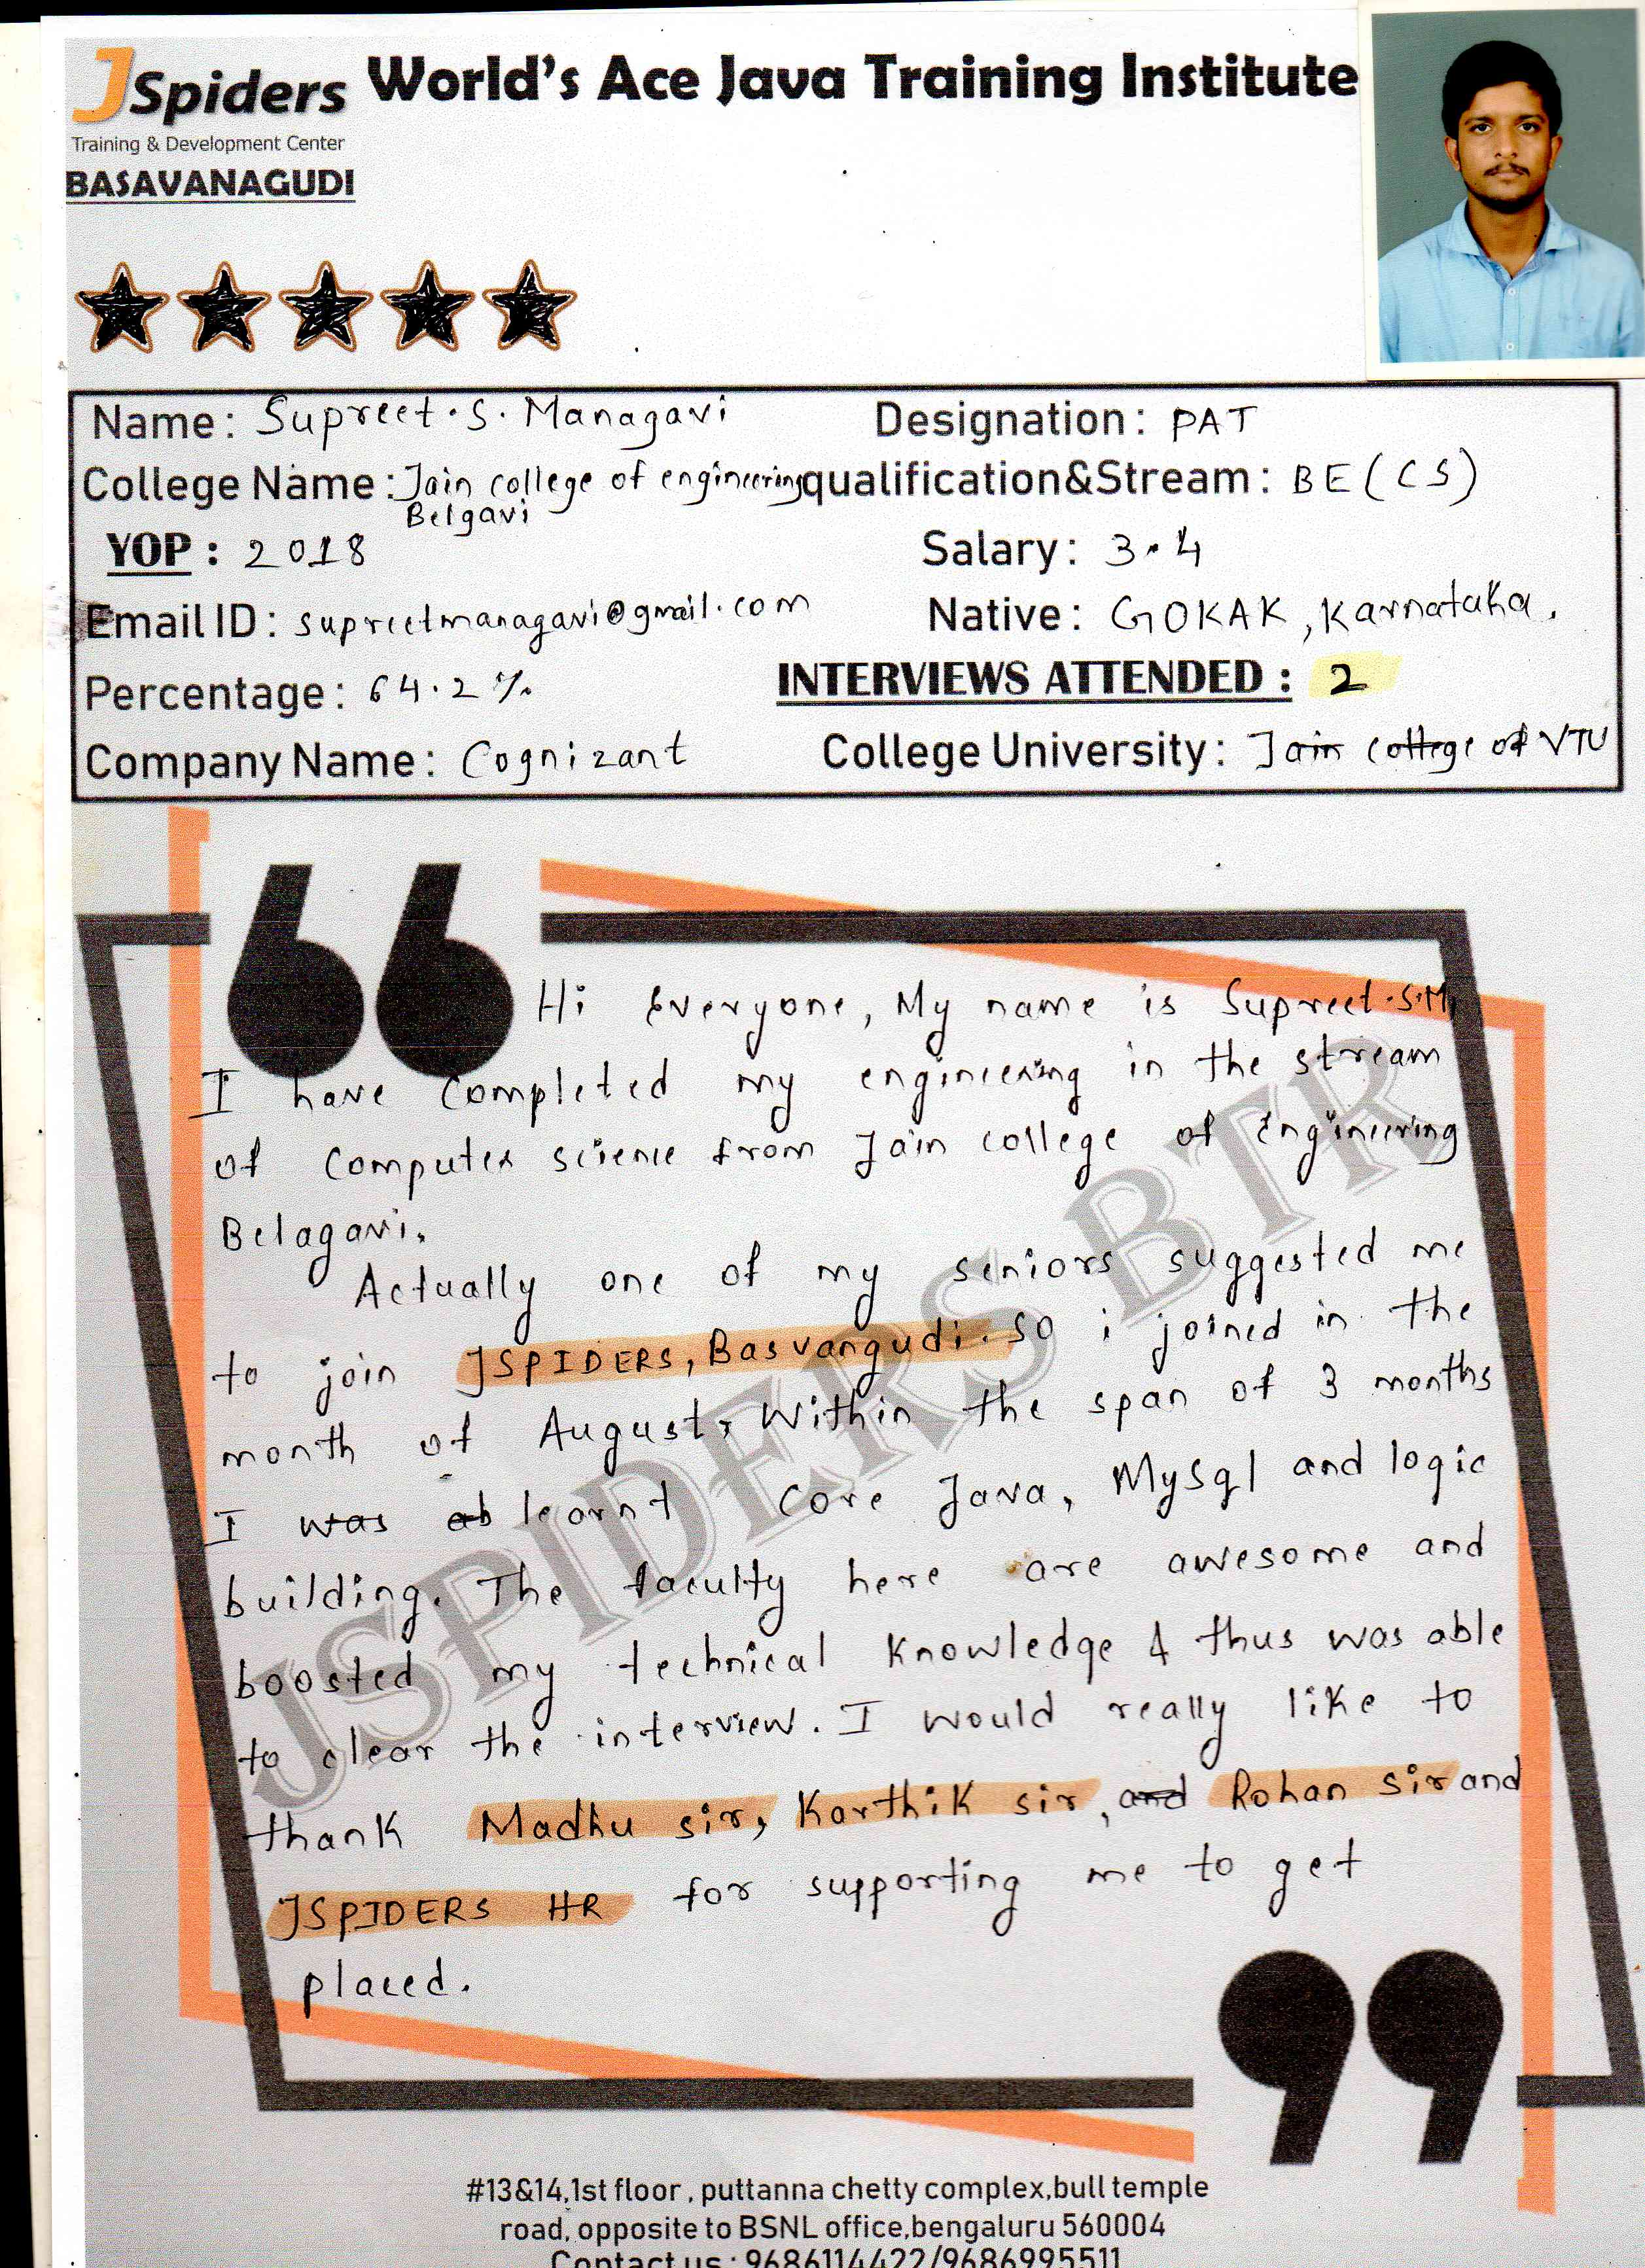 JSpiders World's Ace Java Training Institute
Training & Development Center
BASAVANAGUDI
Name : Supreet.S.Managavi Designation : PAT
College Name : Jain college of engineering qualification&Stream : BE (CS)
Belgavi
YOP : 2018 Salary : 3.4
Email ID : supreetmanagavi@gmail.com Native : GOKAK, Karnataka.
Percentage : 64.2 % INTERVIEWS ATTENDED : 2
Company Name : Cognizant College University : Jain college of VTU
Hi Everyone, My name is Supreet.S.M
I have completed my engineering in the stream
of computer science from Jain college of Engineering
Belagavi.
Actually one of my seniors suggested me
to join JSPIDERS, Basvangudi. So i joined in the
month of August, Within the span of 3 months
I was ab learnt Core Java, MySql and logic
building. The faculty here are awesome and
boosted my technical knowledge & thus was able
to clear the interview. I would really like to
thank Madhu sir, Karthik sir, and Rohan sir and
JSPIDERS HR for supporting me to get
placed.
JSPIDERS BTR
#13&14,1st floor , puttanna chetty complex,bull temple
road, opposite to BSNL office,bengaluru 560004
Contact us : 9686114422/9686995511